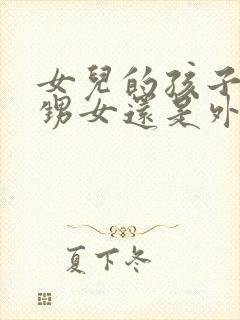 女兒的孩子
甥女還是外
夏下冬